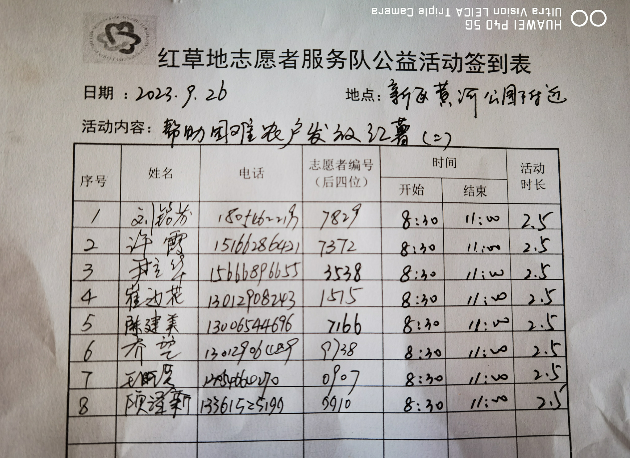 HUAWEI P40 5G
Ultra Vision LEICA Triple Camera
红草地志愿者服务队公益活动签到表
日期：2023.9.26 地点：新区黄河公园附近
活动内容：帮助困难农户发放红薯(二)
序号 姓名 电话 志愿者编号（后四位） 时间 活动时长
开始 结束
1 7829 8:30 11:00 2.5
2 许霞 15166286421 7372 8:30 11:00 2.5
3 15666896655 3538 8:30 11:00 2.5
4 13012908243 1515 8:30 11:00 2.5
5 陈建美 13006544696 7166 8:30 11:00 2.5
6 齐 9738 8:30 11:00 2.5
7 0907 8:30 11:00 2.5
8 顾泽新 8:30 11:00 2.5